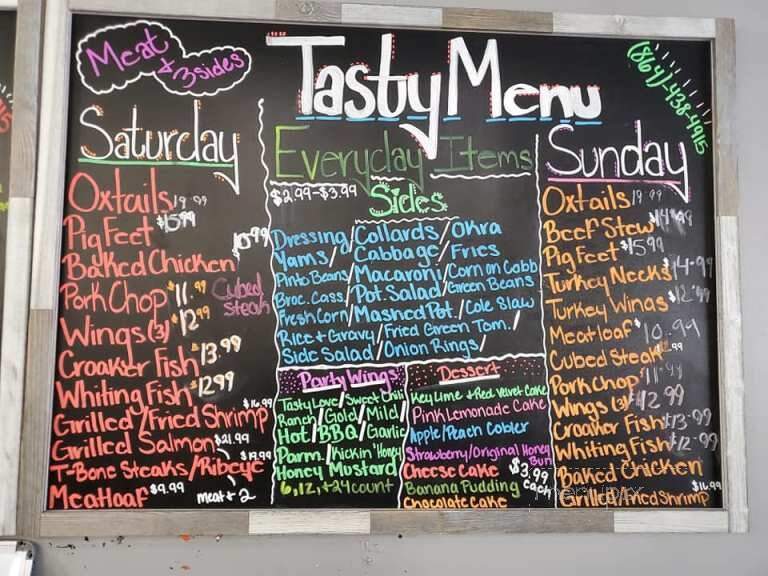 Meat
+ 3 sides
Tasty Menu
(864)-438-4915
Saturday
Oxtails 19.99
Pig Feet $15.99
Baked Chicken 10.99
Pork Chop $11.99
Cubed
steak
Wings (3) $12.99
Croaker Fish 13.99
Whiting Fish $12.99
Grilled/Fried Shrimp $16.99
Grilled Salmon $21.99
T-Bone Steaks/Ribeye $19.99
Meatloaf $9.99 meat + 2
Everyday Items
$2.99-$3.99
Sides
Dressing/Collards/Okra
Yams/Cabbage/Fries
Pinto Beans/Macaroni/Corn on Cobb
Broc. Cass/Pot. Salad/Green Beans
Fresh Corn/Mashed Pot./Cole Slaw
Rice + Gravy/Fried Green Tom./
Side Salad/Onion Rings/
Party Wings
Tasty Love/Sweet Chili
Ranch/Gold/Mild/
Hot/BBQ/Garlic
Parm./Kickin' Honey
Honey Mustard
6, 12, + 24 count
Dessert
Key Lime + Red Velvet Cake
Pink Lemonade Cake
Apple/Peach Cobler
Strawberry/Original Honey
Bun
Cheese Cake $3.99
each
Banana Pudding
Chocolate Cake
Sunday
Oxtails 19.99
Beef Stew $14.99
Pig Feet $15.99
Turkey Necks $14.99
Turkey Wings $12.99
Meatloaf $10.99
Cubed Steak
Pork Chop 11.99
Wings (3) $12.99
Croaker Fish $13.99
Whiting Fish $12.99
Baked Chicken
Grilled/Fried Shrimp $16.99